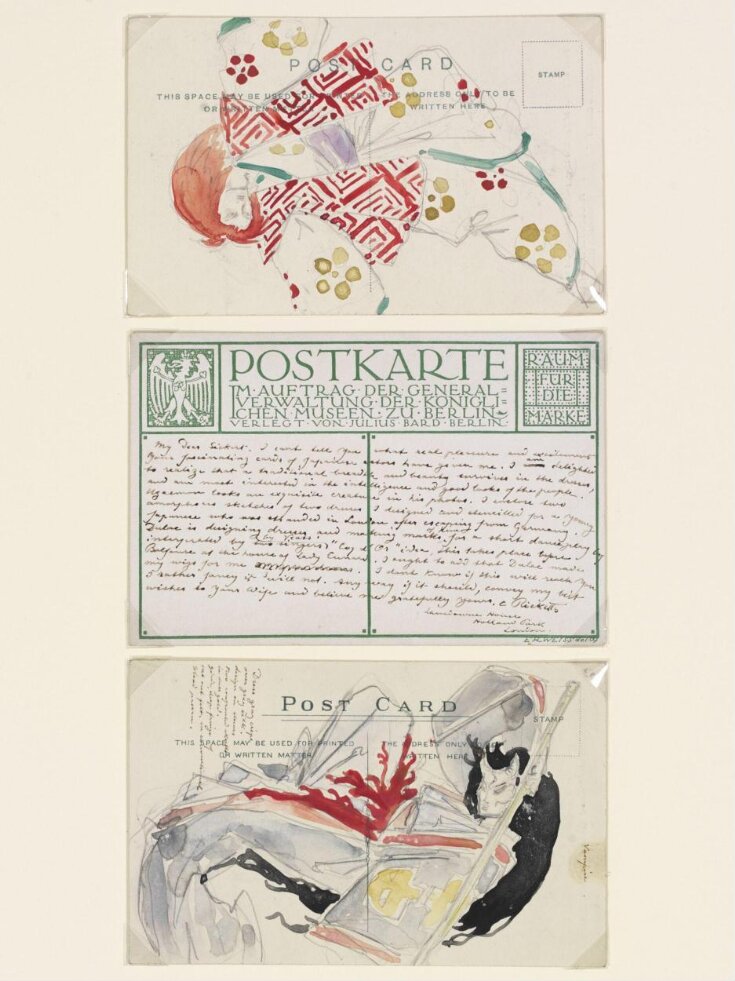 POST CARD
STAMP
THIS SPACE MAY BE USED FOR PRINTED
OR WRITTEN MATTER
THE ADDRESS ONLY TO BE
WRITTEN HERE
POSTKARTE
IM·AUFTRAG·DER·GENERAL=
VERWALTUNG·DER·KÖNIGLI=
CHEN·MUSEEN·ZU·BERLIN
VERLEGT·VON·JULIUS·BARD·BERLIN
RAUM
FÜR
DIE
MARKE
My Dear Sickert. I can't tell you what real pleasure and excitement
Your fascinating cards of Japanese actors have given me. I am delighted
to realize that a traditional breadth and beauty survives in the dresses,
and am most interested in the intelligence and good looks of the people.
looks an exquisite creature in his photos. I enclose two
amorphous sketches of two dresses I designed and stencilled for a young
Japanese who was stranded in London after escaping from Germany.
Dulac is designing dresses and making masks for a short dance play by
Yeats
interrupted by singers, "
Balfour at the house of Lady Cunard. I ought to add that Dulac made
my wigs for me I don't know if this will reach you
I rather fancy it will not. Any way if it should, convey my best
wishes to Your Wife and believe me gratefully yours. C Ricketts
Lansdowne House
Holland Park
London.
POST CARD
STAMP
THIS SPACE MAY BE USED FOR PRINTED
OR WRITTEN MATTER
THE ADDRESS ONLY
WRITTEN HERE
Vampire